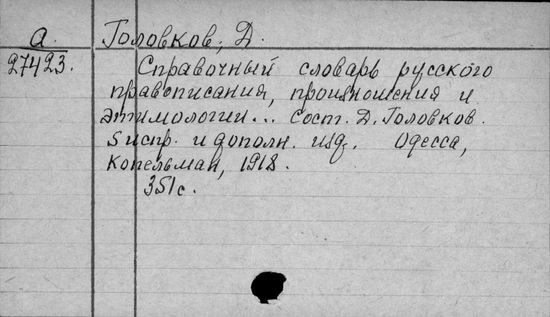 А Головков, Д.
27423. Справочный словарь русского
правописания, произношения и
этимологии... Сост. Д. Головков.
5 испр. и дополн. изд. Одесса,
Копельман, 1918.
351 с.